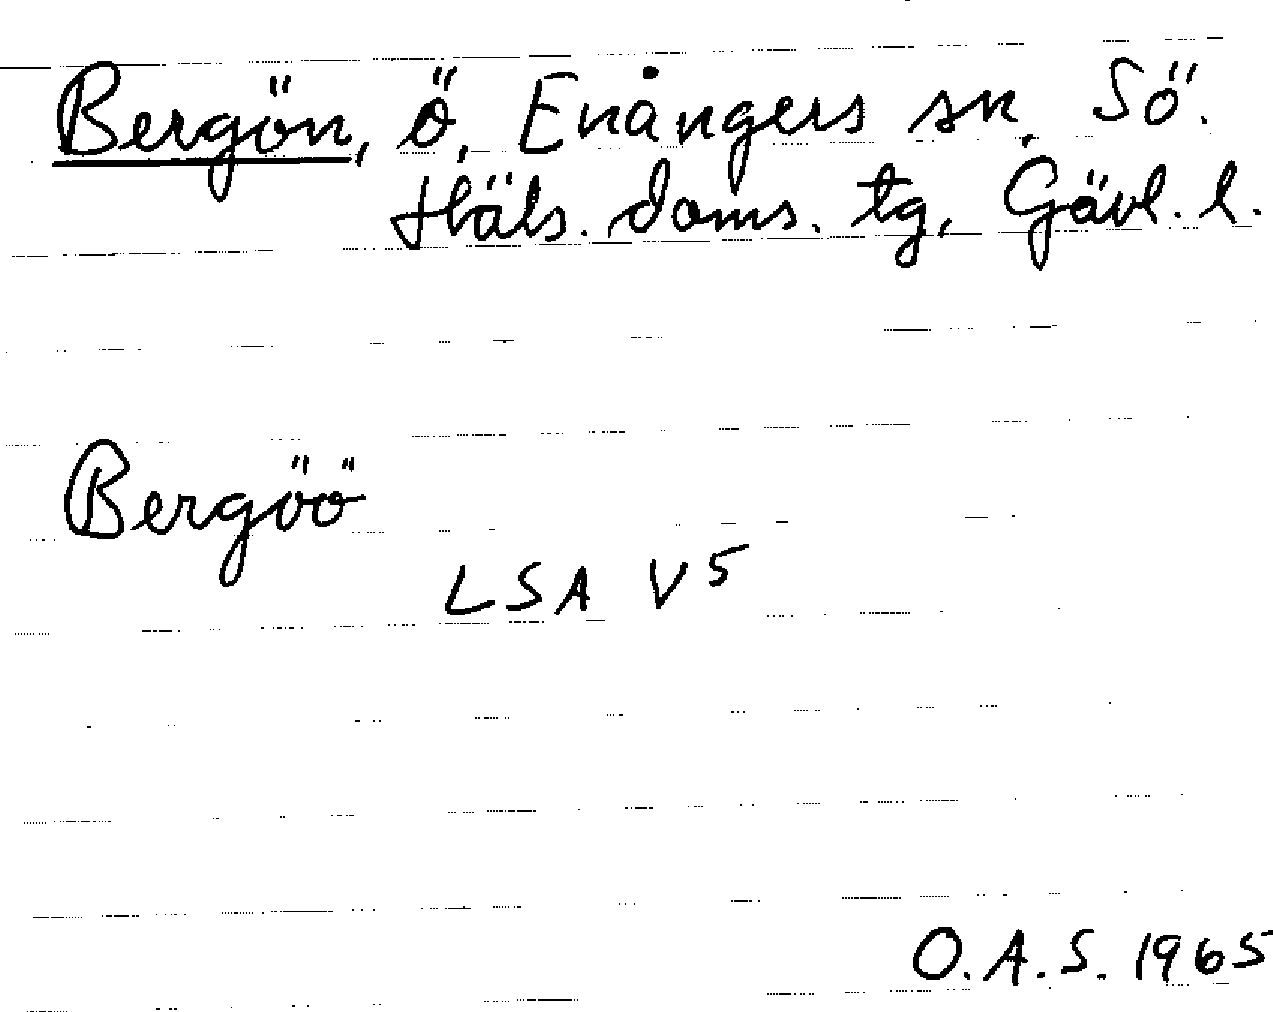 Bergön, ö, Enångers sn, Sö.
Häls. doms. tg, Gävl. l.
Bergöö
LSA V5
O.A.S. 1965